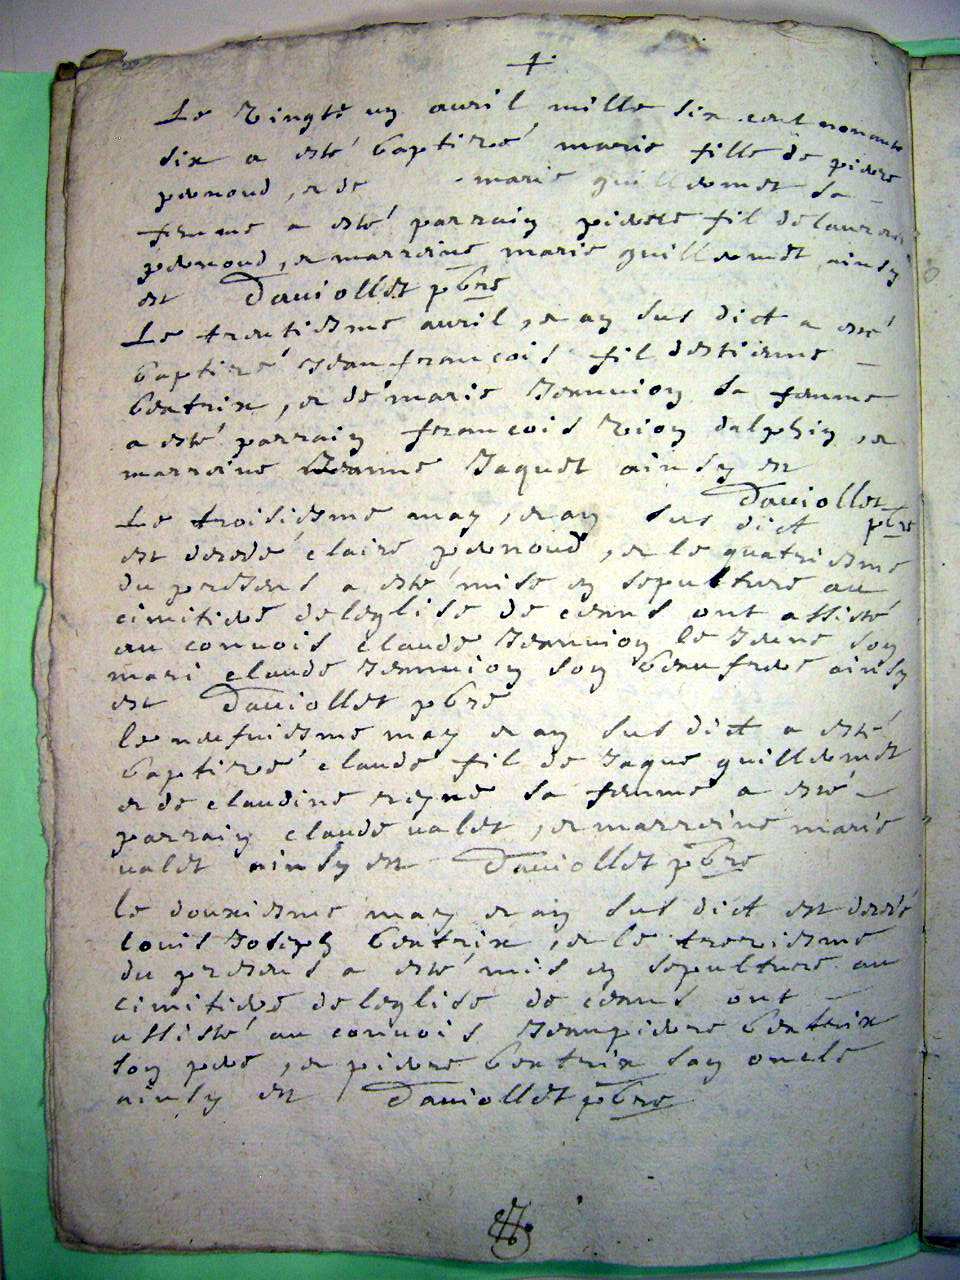 +
Le vingte un auril mille six cent nonante
six a esté baptizé marie fille de pierre
pernoud, et de marie guillermet sa
femme a esté parrain pierre fil de laurens
pernoud, et marraine marie guillermet ainsy
est Dauiollet pbre
Le trentiesme auril, et an sus dict a esté
baptizé Jean francois fil destienne
beatrix, et de marie Jannuion sa femme
a esté parrain francois vion dalphin, et
marraine Jeanne Jaquet ainsy est
Dauiollet
Le troisiesme may, et an sus dict pbre
est decedé claire pernoud, et le quatriesme
du presens a esté mise en sepulture au
cimitiere de leglise de cenns ont assisté
au conuois claude Jannuion le Jeune son
mari claude Jannuion son beau frere ainsy
est Dauiollet pbre
le neufuiesme may et an sus dict a esté
baptizé claude fil de Jaque guillermet
et de claudine reyne sa femme a esté
parrain claude ualet, et marraine marie
ualet ainsy est Dauiollet pbre
le douxiesme may et an sus dict est decedé
louis Joseph beatrix, et le trexiesme
du presens a esté mis en sepulture au
cimitiere de leglise de cenns ont
assisté au conuois Jean pierre beatrix
son pere, et pierre beatrix son oncle
ainsy est Dauiollet pbre